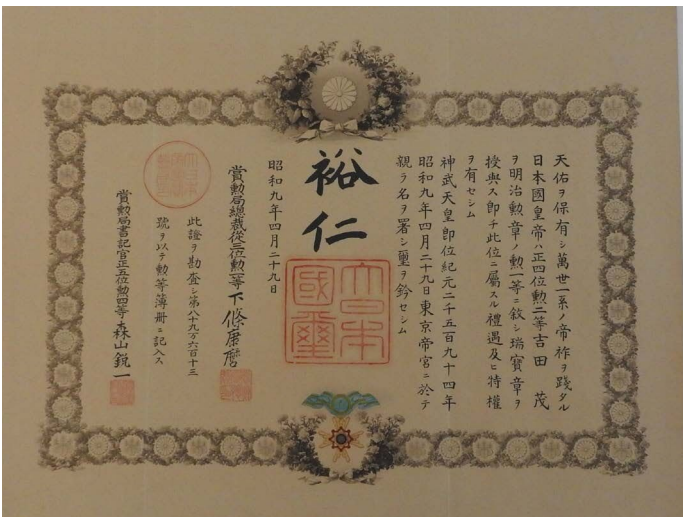 天佑ヲ保有シ萬世一系ノ帝祚ヲ踐タル
日本國皇帝ハ正四位勲二等吉田茂
ヲ明治勲章ノ勲一等ニ敘シ瑞寶章ヲ
授與ス即チ此位ニ屬スル禮遇及ヒ特權
ヲ有セシム
神武天皇即位紀元二千五百九十四年
昭和九年四月二十九日東京帝宮ニ於テ
親ラ名ヲ署シ璽ヲ鈐セシム
裕仁
大日本
國璽
昭和九年四月二十九日
賞勲局總裁從三位勲一等下條康麿
此證ヲ勘査シ第八十九万六百十三
號ヲ以テ勲等簿冊ニ記入ス
賞勲局書記官正五位勲四等森山鋭一